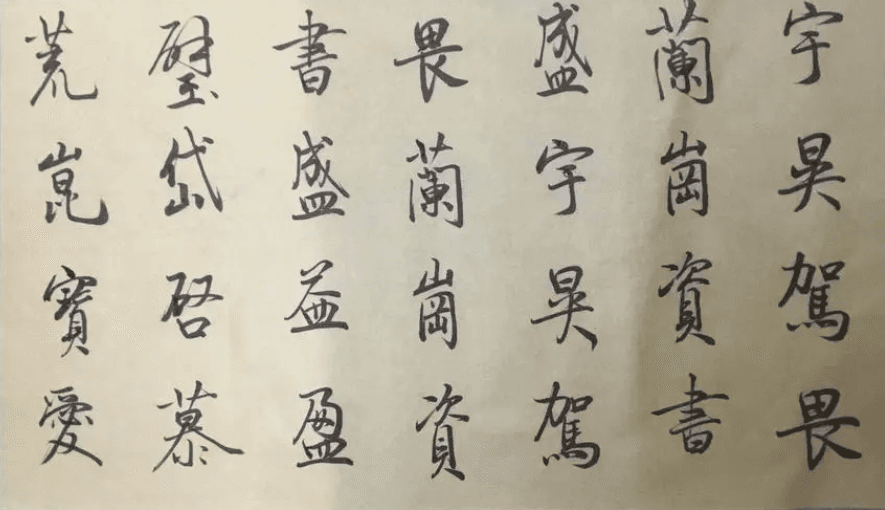 宇昊駕畏
蘭崗資書
盛宇昊駕
畏蘭崗資
書盛益盈
璧岱啓慕
荒崑寶愛